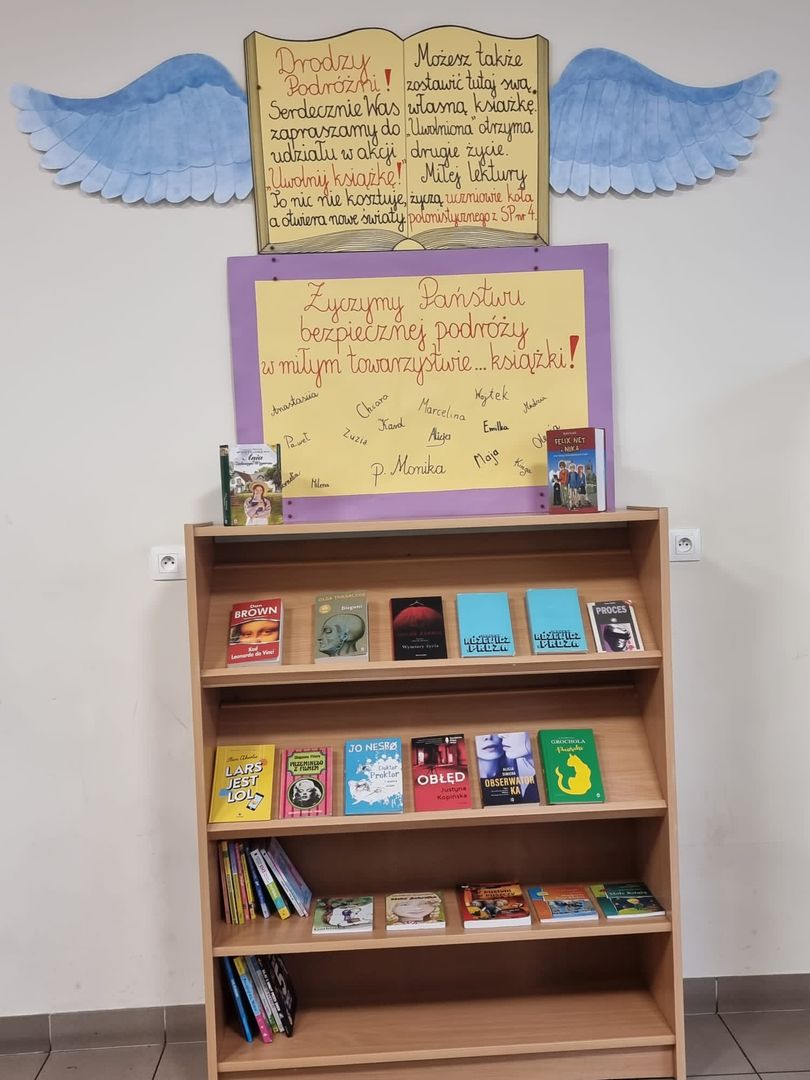 Drodzy
Podróżni!
Serdecznie Was
zapraszamy do
udziału w akcji
„Uwolnij książkę!"
To nic nie kosztuje,
a otwiera nowe światy
Możesz także
zostawić tutaj swą
własną książkę.
„Uwolniona" otrzyma
drugie życie.
Miłej lektury
życzą uczniowie koła
polonistycznego z SP nr 4.
Życzymy Państwu
bezpiecznej podróży
w miłym towarzystwie... książki!
Anastasiia
Chiara
Karol
Marcelina
Wojtek
Paweł
Zuzia
Alicja
Emilka
p. Monika
Maja
Milena
Kinga
Ania
FELIX, NET
i NIKA
Dan
BROWN
Kod
Leonarda da Vinci
OLGA TOKARCZUK
Bieguni
Wymiary życia
RÓŻEWICZ
PROZA
RÓŻEWICZ
PROZA
PROCES
LARS
JEST
LOL
PRZEMINĘŁO
Z FILMEM
JO NESBØ
Doktor
Proktor
OBŁĘD
Justyna
Kopińska
ALICJA
SINICKA
OBSERWATOR
KA
GROCHOLA